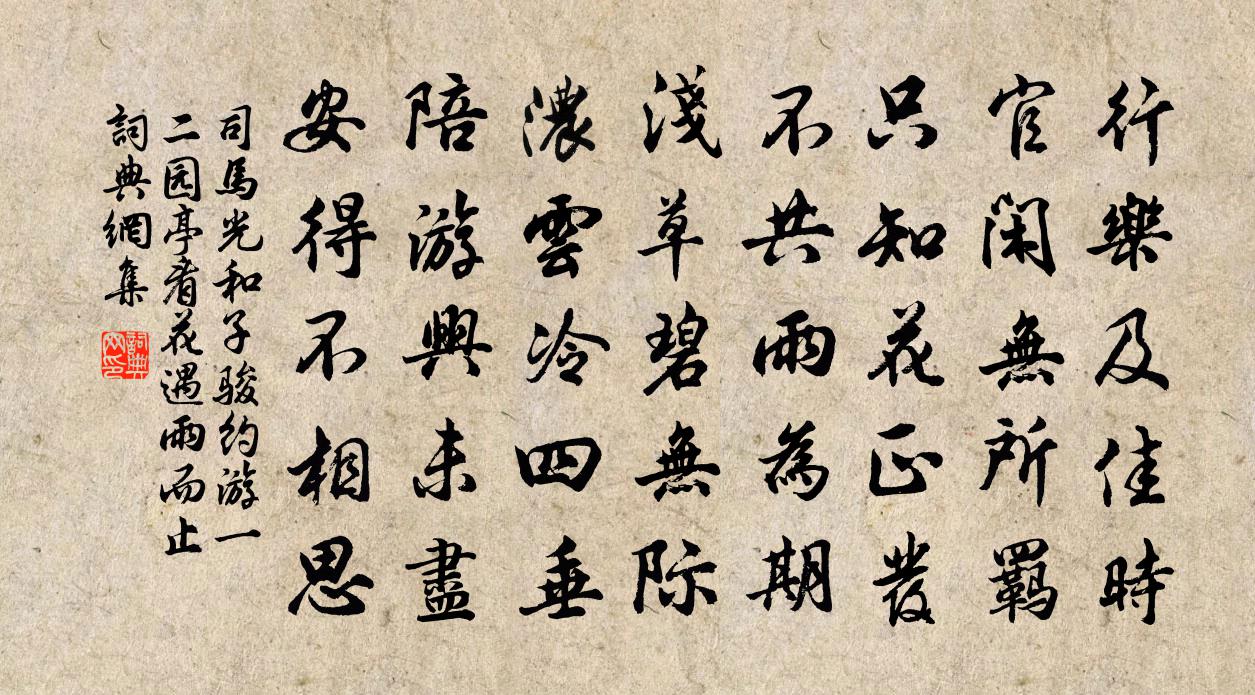 行樂及佳時
官閑無所羁
只知花正發
不共雨為期
淺草碧無际
濃雲冷四垂
陪游興未盡
安得不相思
司馬光和子骏約游一
二园亭看花遇雨而止
詞典網集
詞典
网印